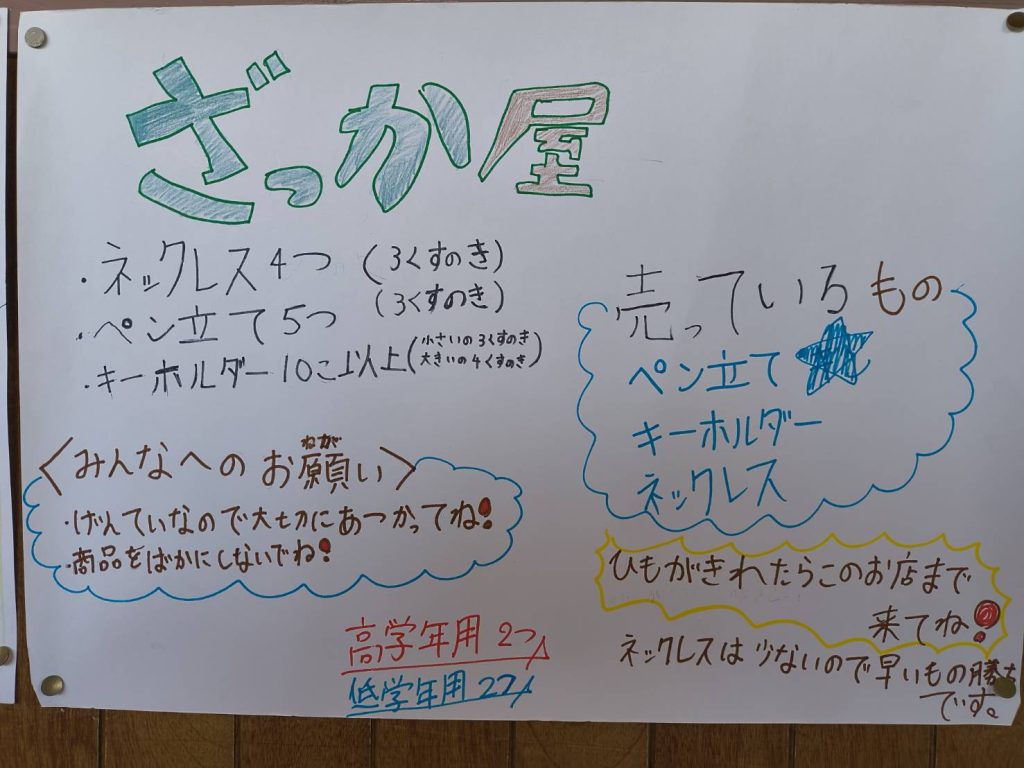 ざっか屋
・ネックレス4つ (3くすのき)
・ペン立て5つ (3くすのき)
・キーホルダー10こ以上(小さいの3くすのき 大きいの4くすのき)
売っているもの
ペン立て
キーホルダー
ネックレス
〈みんなへのお願い〉
ねが
・げんていなので大切にあつかってね!
・商品をばかにしないでね!
ひもがきれたらこのお店まで
来てね!
ネックレスは少ないので早いもの勝ち
です。
高学年用2つ
低学年用2つ